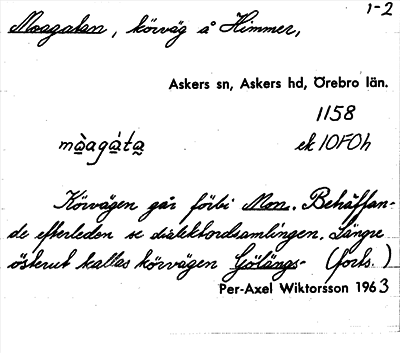 1-2
Moagatan, körväg å Himmer,
Askers sn, Askers hd, Örebro län.
1158
mòagáta ek 10F0h
Körvägen går förbi Mon. Beträffan-
de efterleden se dialektordsamlingen. Längre
österut kallas körvägen Gölängs- (forts.)
Per-Axel Wiktorsson 1963